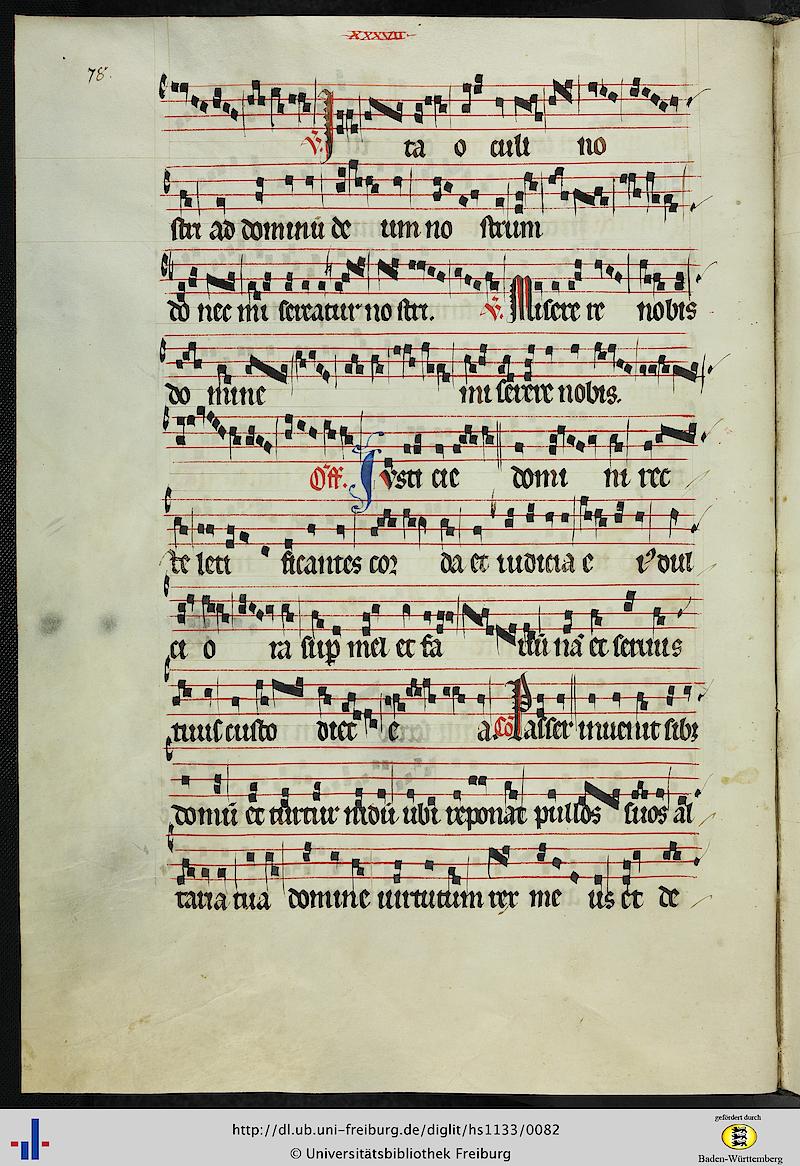 XXXVII
78.
V. Ita oculi no
stri ad dominū deum nostrum
donec misereatur nostri. V. Miserere nobis
domine miserere nobis.
Off. Iusticie domini rec
te letificantes corda et iudicia ei⁹ dul
ciora sup mel et fa uū nā et seruus
tuus custodiet ea. Cō Passer inuenit sibi
domū et turtur nidū ubi reponat pullos suos al
taria tua domine uirtutum rex meus et de
http://dl.ub.uni-freiburg.de/diglit/hs1133/0082
© Universitätsbibliothek Freiburg
gefördert durch
Baden-Württemberg